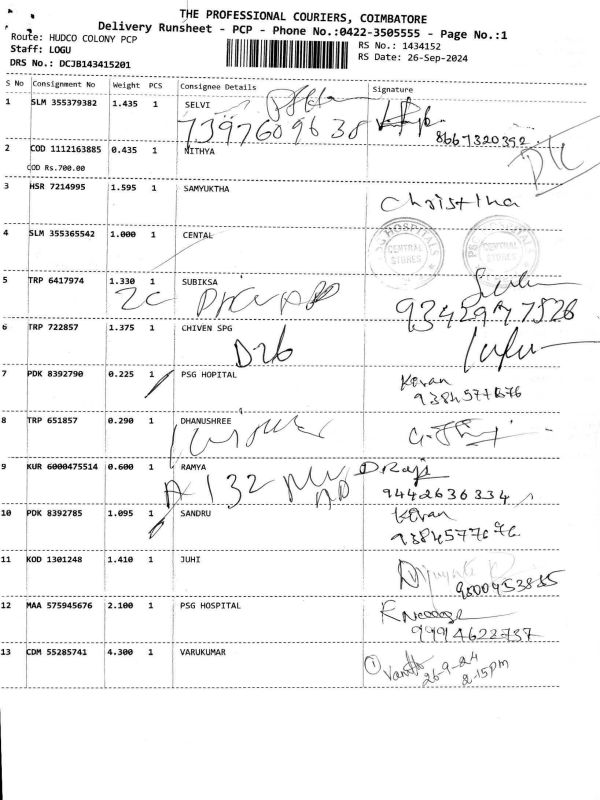 THE PROFESSIONAL COURIERS, COIMBATORE
Delivery Runsheet - PCP - Phone No.:0422-3505555 - Page No.:1
Route: HUDCO COLONY PCP
Staff: LOGU
DRS No.: DCJB143415201
RS No.: 1434152
RS Date: 26-Sep-2024
S No Consignment No Weight PCS Consignee Details Signature
1 SLM 355379382 1.435 1 SELVI
7397609638 8667320392
2 COD 1112163885 0.435 1 NITHYA
COD Rs.700.00
3 HSR 7214995 1.595 1 SAMYUKTHA
Christina
4 SLM 355365542 1.000 1 CENTAL
HOSPITALS CENTRAL STORES
CENTRAL STORES
5 TRP 6417974 1.330 1 SUBIKSA
9342977526
6 TRP 722857 1.375 1 CHIVEN SPG
D26
7 PDK 8392790 0.225 1 PSG HOPITAL
Kiran
9384577676
8 TRP 651857 0.290 1 DHANUSHREE
9 KUR 6000475514 0.600 1 RAMYA
A 132 D Raji
9442636334
10 PDK 8392785 1.095 1 SANDRU
Kiran
9384577676
11 KOD 1301248 1.410 1 JUHI
9500453855
12 MAA 575945676 2.100 1 PSG HOSPITAL
9994622737
13 CDM 55285741 4.300 1 VARUKUMAR
1
26-9-24
2-15pm